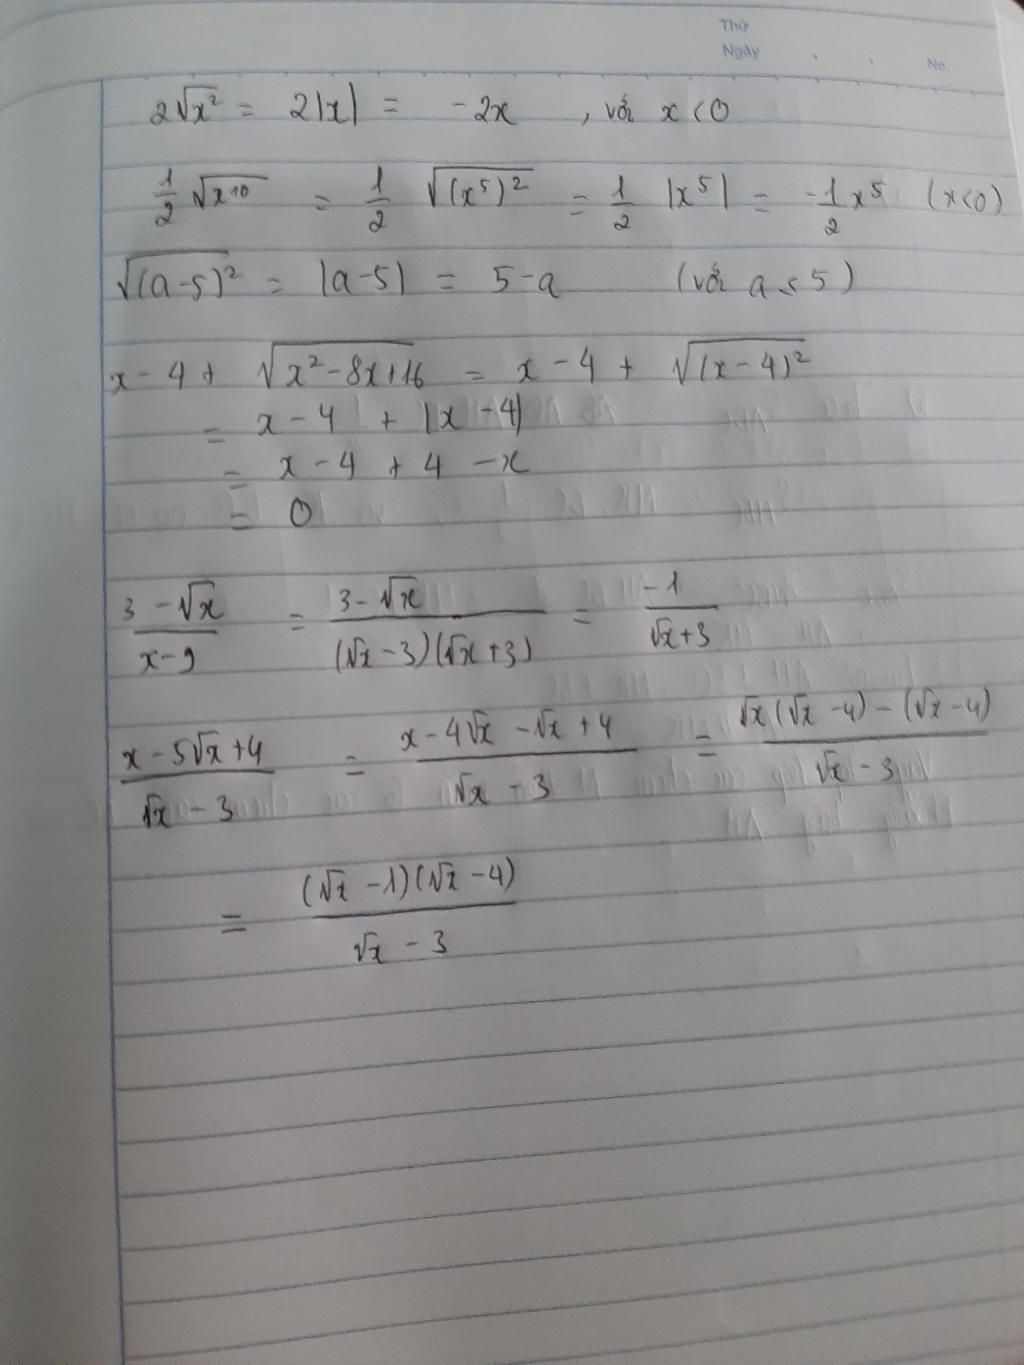 Thứ
Ngày . . No.
2√x² = 2|x| = -2x , với x < 0
1/2 √x¹⁰ = 1/2 √(x⁵)² = 1/2 |x⁵| = -1/2 x⁵ (x<0)
√(a-5)² = |a-5| = 5-a (với a ≤ 5)
x - 4 + √(x² - 8x + 16) = x - 4 + √(x - 4)²
= x - 4 + |x - 4|
= x - 4 + 4 - x
= 0
(3 - √x)/(x - 9) = (3 - √x)/((√x - 3)(√x + 3)) = -1/(√x + 3)
(x - 5√x + 4)/(√x - 3) = (x - 4√x - √x + 4)/(√x - 3) = (√x(√x - 4) - (√x - 4))/(√x - 3)
= ((√x - 1)(√x - 4))/(√x - 3)